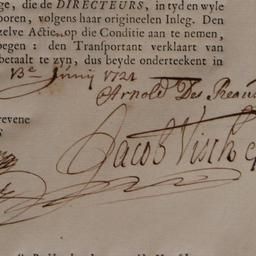 ge, die de DIRECTEURS, in tyd en wyle
ooren, volgens haar origineelen Inleg. Den
zelve Actie, op die Conditie aan te nemen,
oegen: den Transportant verklaart van
betaalt te zyn, dus beyde onderteekent in
13e Junij 1721
Arnold Des
revene
Jacob Visch